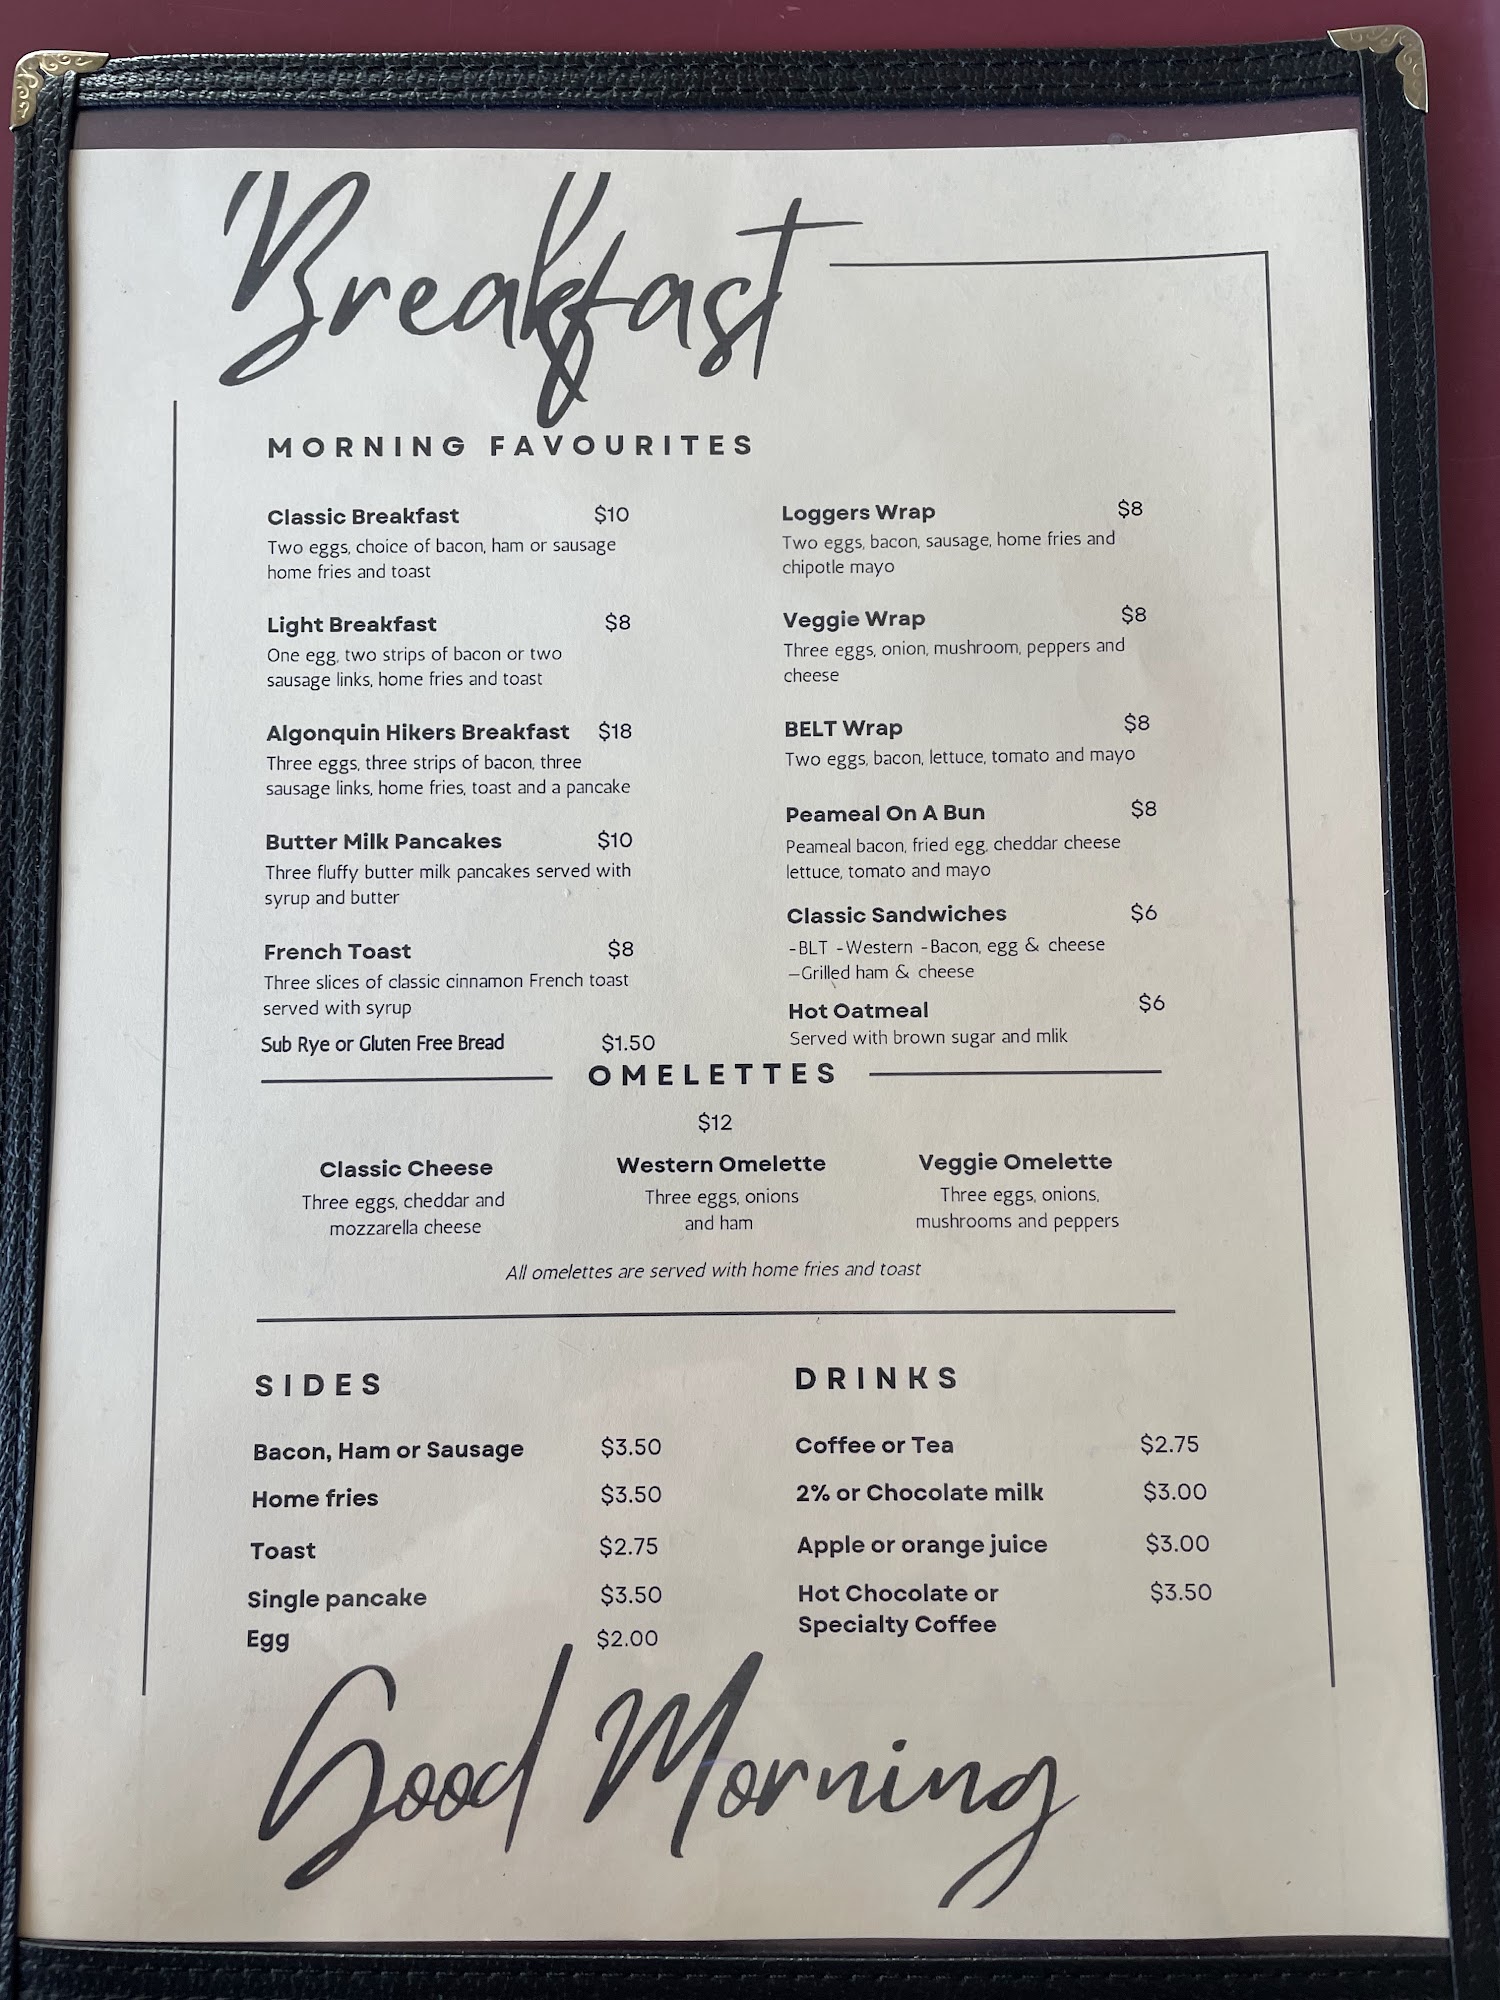 Breakfast
MORNING FAVOURITES
Classic Breakfast $10
Two eggs, choice of bacon, ham or sausage
home fries and toast
Light Breakfast $8
One egg, two strips of bacon or two
sausage links, home fries and toast
Algonquin Hikers Breakfast $18
Three eggs, three strips of bacon, three
sausage links, home fries, toast and a pancake
Butter Milk Pancakes $10
Three fluffy butter milk pancakes served with
syrup and butter
French Toast $8
Three slices of classic cinnamon French toast
served with syrup
Sub Rye or Gluten Free Bread $1.50
Loggers Wrap $8
Two eggs, bacon, sausage, home fries and
chipotle mayo
Veggie Wrap $8
Three eggs, onion, mushroom, peppers and
cheese
BELT Wrap $8
Two eggs, bacon, lettuce, tomato and mayo
Peameal On A Bun $8
Peameal bacon, fried egg, cheddar cheese
lettuce, tomato and mayo
Classic Sandwiches $6
-BLT -Western -Bacon, egg & cheese
–Grilled ham & cheese
Hot Oatmeal $6
Served with brown sugar and mlik
OMELETTES
$12
Classic Cheese
Three eggs, cheddar and
mozzarella cheese
Western Omelette
Three eggs, onions
and ham
Veggie Omelette
Three eggs, onions,
mushrooms and peppers
All omelettes are served with home fries and toast
SIDES
Bacon, Ham or Sausage $3.50
Home fries $3.50
Toast $2.75
Single pancake $3.50
Egg $2.00
DRINKS
Coffee or Tea $2.75
2% or Chocolate milk $3.00
Apple or orange juice $3.00
Hot Chocolate or $3.50
Specialty Coffee
Good Morning